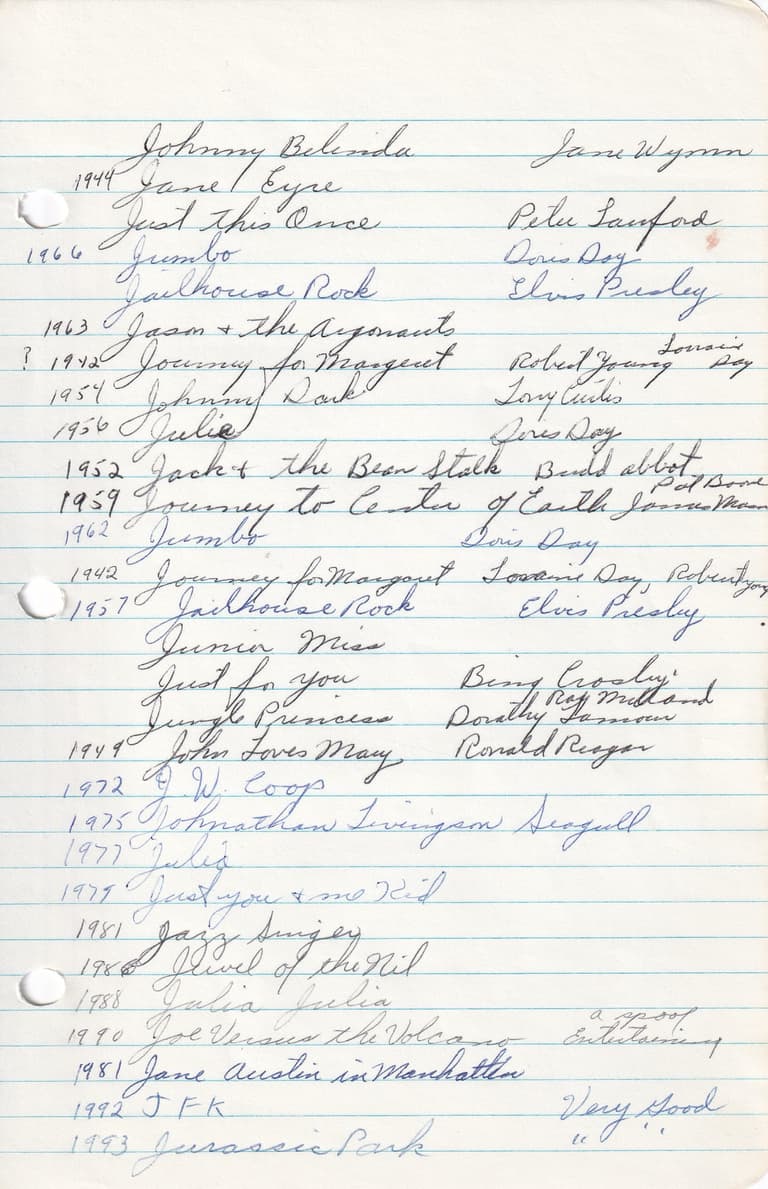 Johnny Belinda Jane Wymn
1944 Jane Eyre
Just this Once Peter Lawford
1966 Jumbo Doris Day
Jailhouse Rock Elvis Presley
1963 Jason + the Argonauts
? 1942 Journey for Margaret Robert Young Lorrain Day
1954 Johnny Dark Tony Curtis
1956 Julie Doris Day
1952 Jack + the Bean Stalk Budd abbot
1959 Journey to Center of Earth Pat Boone James Mason
1962 Jumbo Doris Day
1942 Journey for Margaret Loraine Day, Robert Yong
1957 Jailhouse Rock Elvis Presley
Junior Miss
Just for you Bing Crosby
Jungle Princess Dorothy Lamour Ray Milland
1949 John Loves Mary Ronald Reagan
1972 J. W. Coop
1975 Johnathan Livingson Seagull
1977 Julia
1979 Just you + me Kid
1981 Jazz Singer
Jewel of the Nil
1988 Julia Julia
1990 Joe Versus the Volcano a spoof Entertaining
1981 Jane Austin in Manhatten
1992 JFK Very Good
1993 Jurassic Park " "